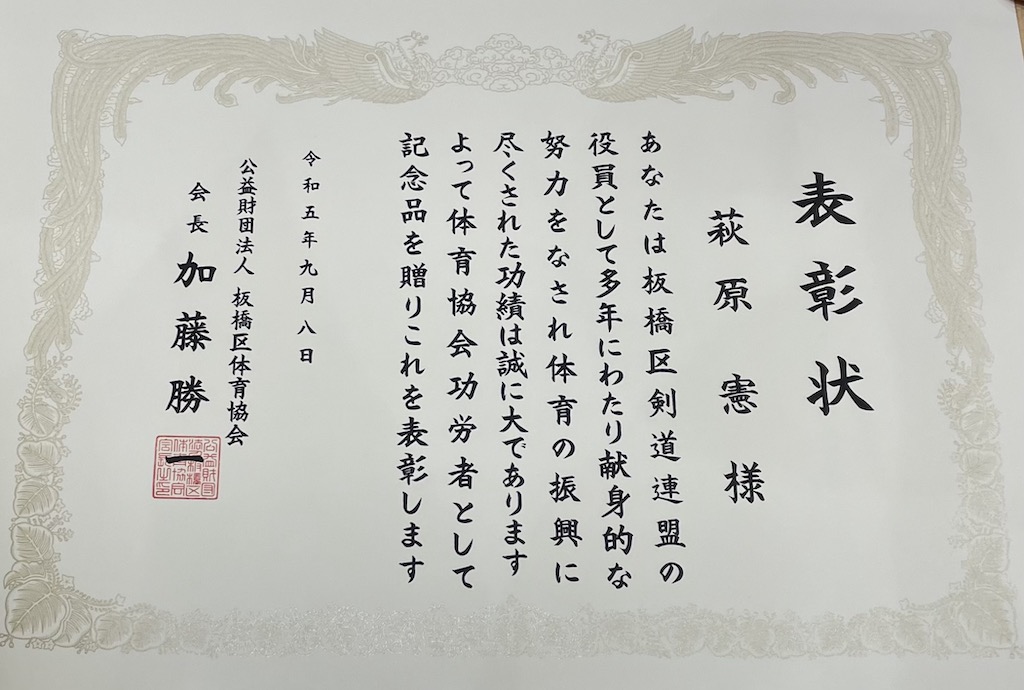 表彰状
萩原憲様
あなたは板橋区剣道連盟の
役員として多年にわたり献身的な
努力をなされ体育の振興に
尽くされた功績は誠に大であります
よって体育協会功労者として
記念品を贈りこれを表彰します
令和五年九月八日
公益財団法人 板橋区体育協会
会長 加藤勝一